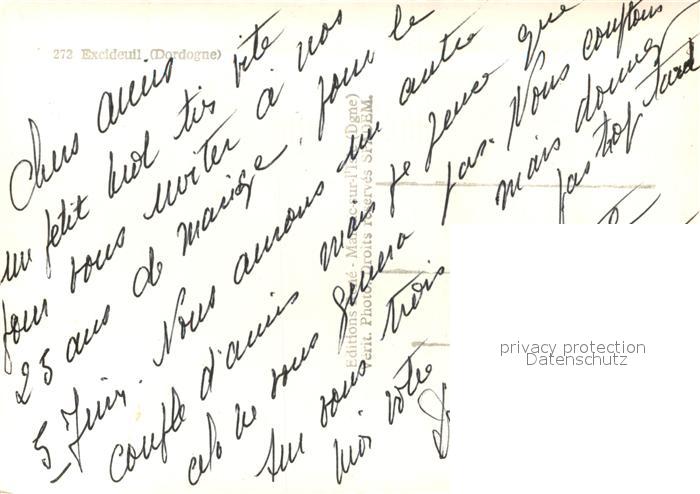 272 Excideuil (Dordogne)
Chers amis
un petit mot très vite
pour vous inviter à nos
25 ans de mariage, pour le
5 Juin. Nous aurons un autre
couple d'amis mais je pense que
cela ne vous genera pas. Nous comptons
sur vous trois mais donnez
moi votre
pas trop tard
Editions - Marsac-sur-l'Isle (Dgne)
Vérit. Photo Droits réservés SPADEM.
privacy protection
Datenschutz